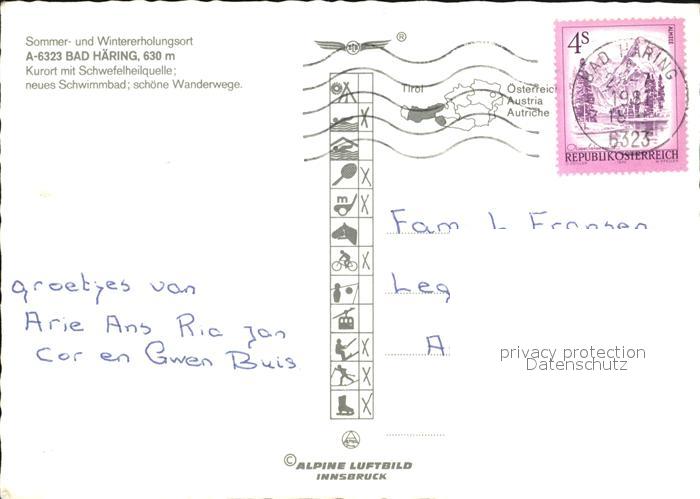 Sommer- und Wintererholungsort
A-6323 BAD HÄRING, 630 m
Kurort mit Schwefelheilquelle;
neues Schwimmbad; schöne Wanderwege.
®
Tirol
Österreich
Austria
Autriche
4s
ALMSEE
BAD HÄRING
6323
REPUBLIK ÖSTERREICH
m
Fam L Fransen
Leg
A
groetjes van
Arie Ans Ria Jan
Cor en Gwen Buis
privacy protection
Datenschutz
© ALPINE LUFTBILD
INNSBRUCK